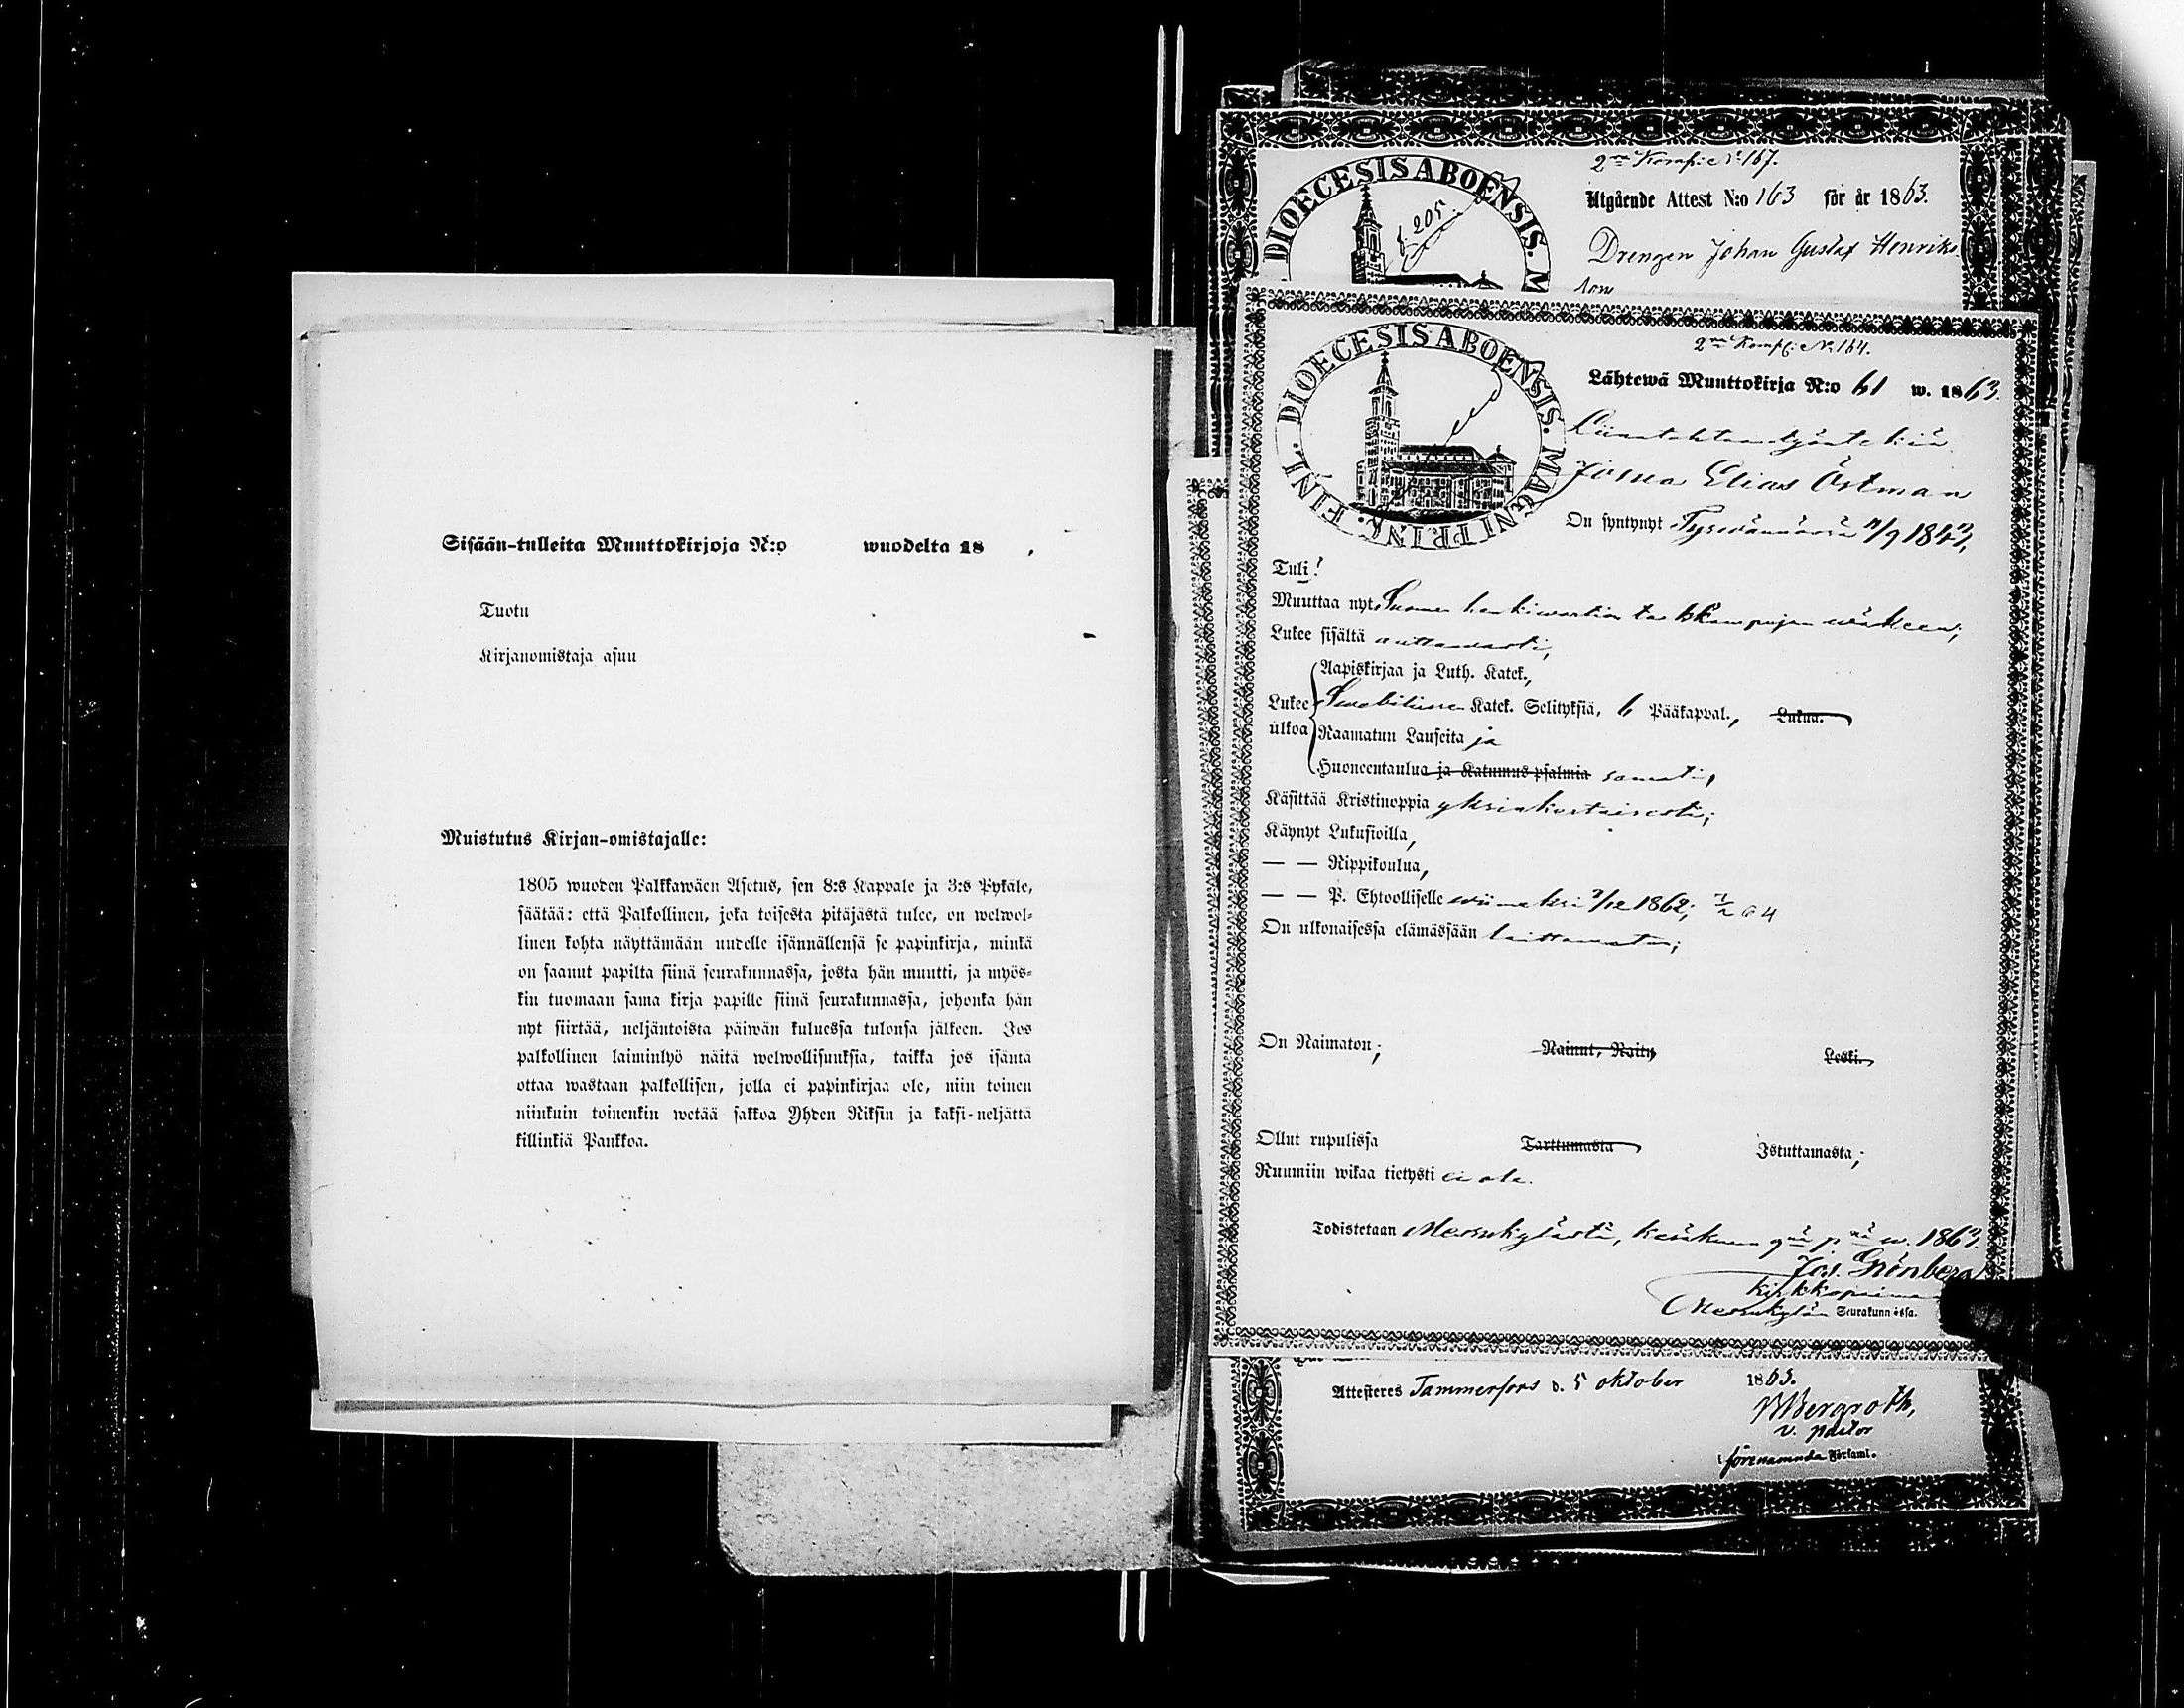 Sisään-tulleita Muuttokirjoja N:o wuodelta 18 .
Tuotu
Kirjanomistaja asuu
Muistutus Kirjan-omistajalle:
1805 wuoden Palkkawäen Asetus, sen 8:s Kappale ja 3:s Pykäle,
säätää: että Palkollinen, joka toisesta pitäjästä tulee, on welwol-
linen kohta näyttämään uudelle isännällensä se papinkirja, minkä
on saanut papilta siinä seurakunnassa, josta hän muutti, ja myös-
kin tuomaan sama kirja papille siinä seurakunnassa, johonka hän
nyt siirtää, neljäntoista päiwän kuluessa tulonsa jälkeen. Jos
palkollinen laiminlyö näitä welwollisuuksia, taikka jos isäntä
ottaa wastaan palkollisen, jolla ei papinkirjaa ole, niin toinen
niinkuin toinenkin wetää sakkoa Yhden Riksin ja kaksi-neljättä
killinkiä Pankkoa.
2:ne Komp:ie N:167.
Utgående Attest N:o 163 för år 1863.
Drengen Johan Gustaf Henriks
son
DIOECESIS ABOENSIS. M
f. 205.
2:ne Komp:ie N:164.
Lähtewä Muuttokirja N:o 61 w. 1863.
DIOECESIS ABOENSIS. MAGNI PRINC. FINL.
Elias Östman
On syntynyt
Tuli!
Muuttaa nyt Suomen
Lukee sisältä auttawasti,
Aapiskirjaa ja Luth. Katek.,
Lukee ulkoa Swebiliusen Katek. Selityksiä, 6 Pääkappal., Lukua.
Raamatun Lauseita ja
Huoneentaulua ja Katumus-psalmia samati,
Käsittää Kristinoppia yksinkertaisesti;
Käynyt Lukusioilla,
— — Rippikoulua,
— — P. Ehtoolliselle wiimeksi 7/12 1862;
On ulkonaisessa elämässään laittamaton;
On Naimaton; Nainut, Naitu Leski.
Ollut rupulissa Tarttumasta Istuttamasta;
Ruumiin wikaa tietysti ei ole.
Todistetaan Messukylästä, kesäkuun 9 p. w. 1863.
Jos. Grönberg
kirkkoherra
Messukylän Seurakunnassa.
Attesteres Tammerfors d. 5 oktober 1863.
Bergroth,
v. pastor
i förenämnda Församl.